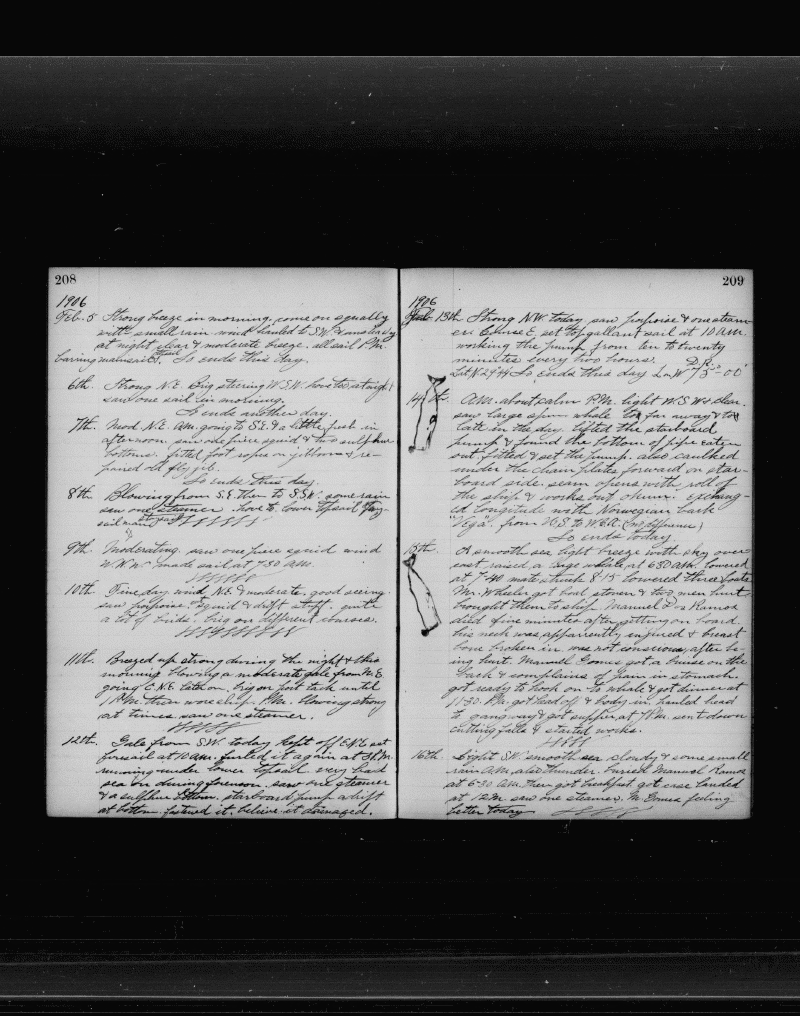 208
1906
Feb. 5 Strong breeze in morning. come on squally
with small rain wind hauled to S.W. &
at night clear & moderate breeze. all sail P.M.
baring mainsail. So ends this day.
6th. Strong N.E. Brig steering W.S.W. hove to at night
saw one sail in morning.
So ends another day.
7th. Mod N.E. am. going to S.E. & a little fresh in
afternoon. saw one piece squid & two sulphur
bottoms. fitted foot ropes on jibboom & re-
paired old fly jib.
So ends this day.
8th. Blowing from S.E. then to S.S.W. some rain
saw one steamer. hove to lower topsail
sail
9th. Moderating. saw one piece squid wind
W.N.W. made sail at 7.30 AM.
10th. Fine day wind N.E. & moderate. good seeing.
saw porpoise, squid & drift stuff. quite
a lot of birds. brig on different courses.
11th. Breezed up strong during the night & this
morning blowing a moderate gale from N.E.
going E.N.E. brig on port tack until
P.M. then wore ship. P.M. blowing strong
at times. saw one steamer.
12th. Gale from S.W. today kept off E.N.E. set
foresail at 10 am. furled it again at P.M.
running under lower topsail. very bad
sea on during forenoon. saw one steamer
& a sulphur bottom. starboard pump adrift
at bottom. fastened it. believe it damaged.
209
1906
Feb 13th. Strong N.W. today saw porpoise & one steam-
er. Course E. set top gallant sail at 10 A.M.
working the pump from ten to twenty
minutes every two hours. D.R.
Lat. N 29°44 So ends this day Lon W 75°-00'
14th. A.M. about calm P.M. light W.S.W. & clear.
saw large sperm whale too far away & too
late in the day. lifted the starboard
pump & found the bottom of pipe eaten
out. fitted & set the pump. also caulked
under the chain plates forward on star-
board side. seam opens with roll of
the ship & works out okum. exchang-
ed longitude with Norwegian bark
"Vega". from U.S. to W.C.A. (no difference)
So ends today.
15th. A smooth sea light breeze with sky over-
cast raised a large whale at 6 30 AM. lowered
at 7-40 mate struck 8-15 lowered three boats
Mr. Wheeler got boat stoven & two men hurt
brought them to ship Manuel Ramos
died five minutes after getting on board
his neck was apparrently injured & breast
bone broken in. was not conscious after be-
ing hurt. Manuel Gomes got a bruise on the
back & complains of pain in stomach.
got ready to hook on to whale & got dinner at
11-30 P.M. got head off & body in. hauled head
to gangway & got supper at 7 P.M. sent down
cutting falls & started works.
16th. Light S.W. smooth sea cloudy & some small
rain A.M. also thunder. buried Manuel Ramos
at 6-30 A.M. then got breakfast. got case landed
at 12 M. saw one steamer. M. Gomes feeling
better today